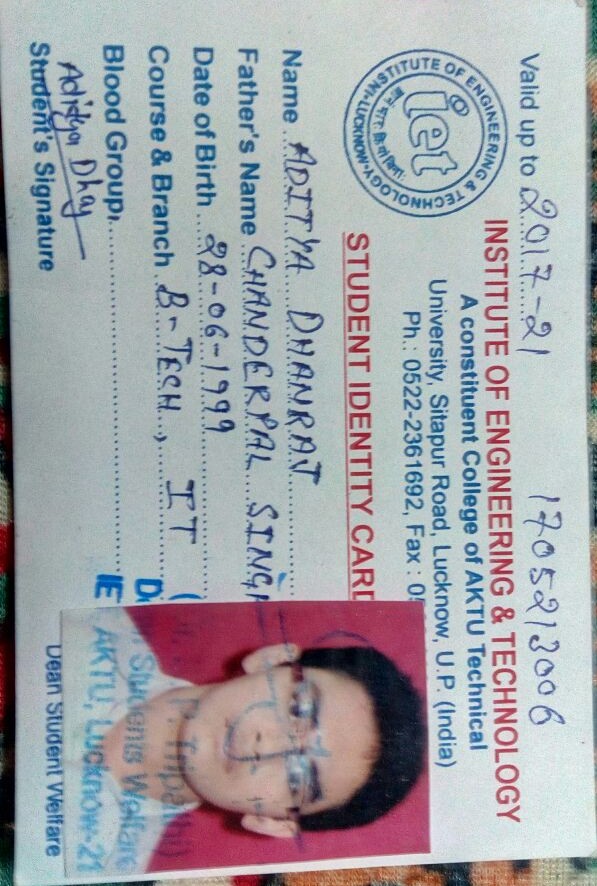 Valid up to 2017-21
1705213006
INSTITUTE OF ENGINEERING & TECHNOLOGY
A constituent College of AKTU Technical
University, Sitapur Road, Lucknow, U.P. (India)
Ph.: 0522-2361692, Fax : 05
INSTITUTE OF ENGINEERING & TECHNOLOGY
LUCKNOW
iet
STUDENT IDENTITY CARD
Name ADITYA DHANRAJ
Father's Name CHANDERPAL SINGH
Date of Birth 28-06-1999
Course & Branch B-TECH, IT
Blood Group
Aditya Dhanraj
Student's Signature
Tripathi)
Students Welfare
IE AKTU, Lucknow-21
Dean Student Welfare